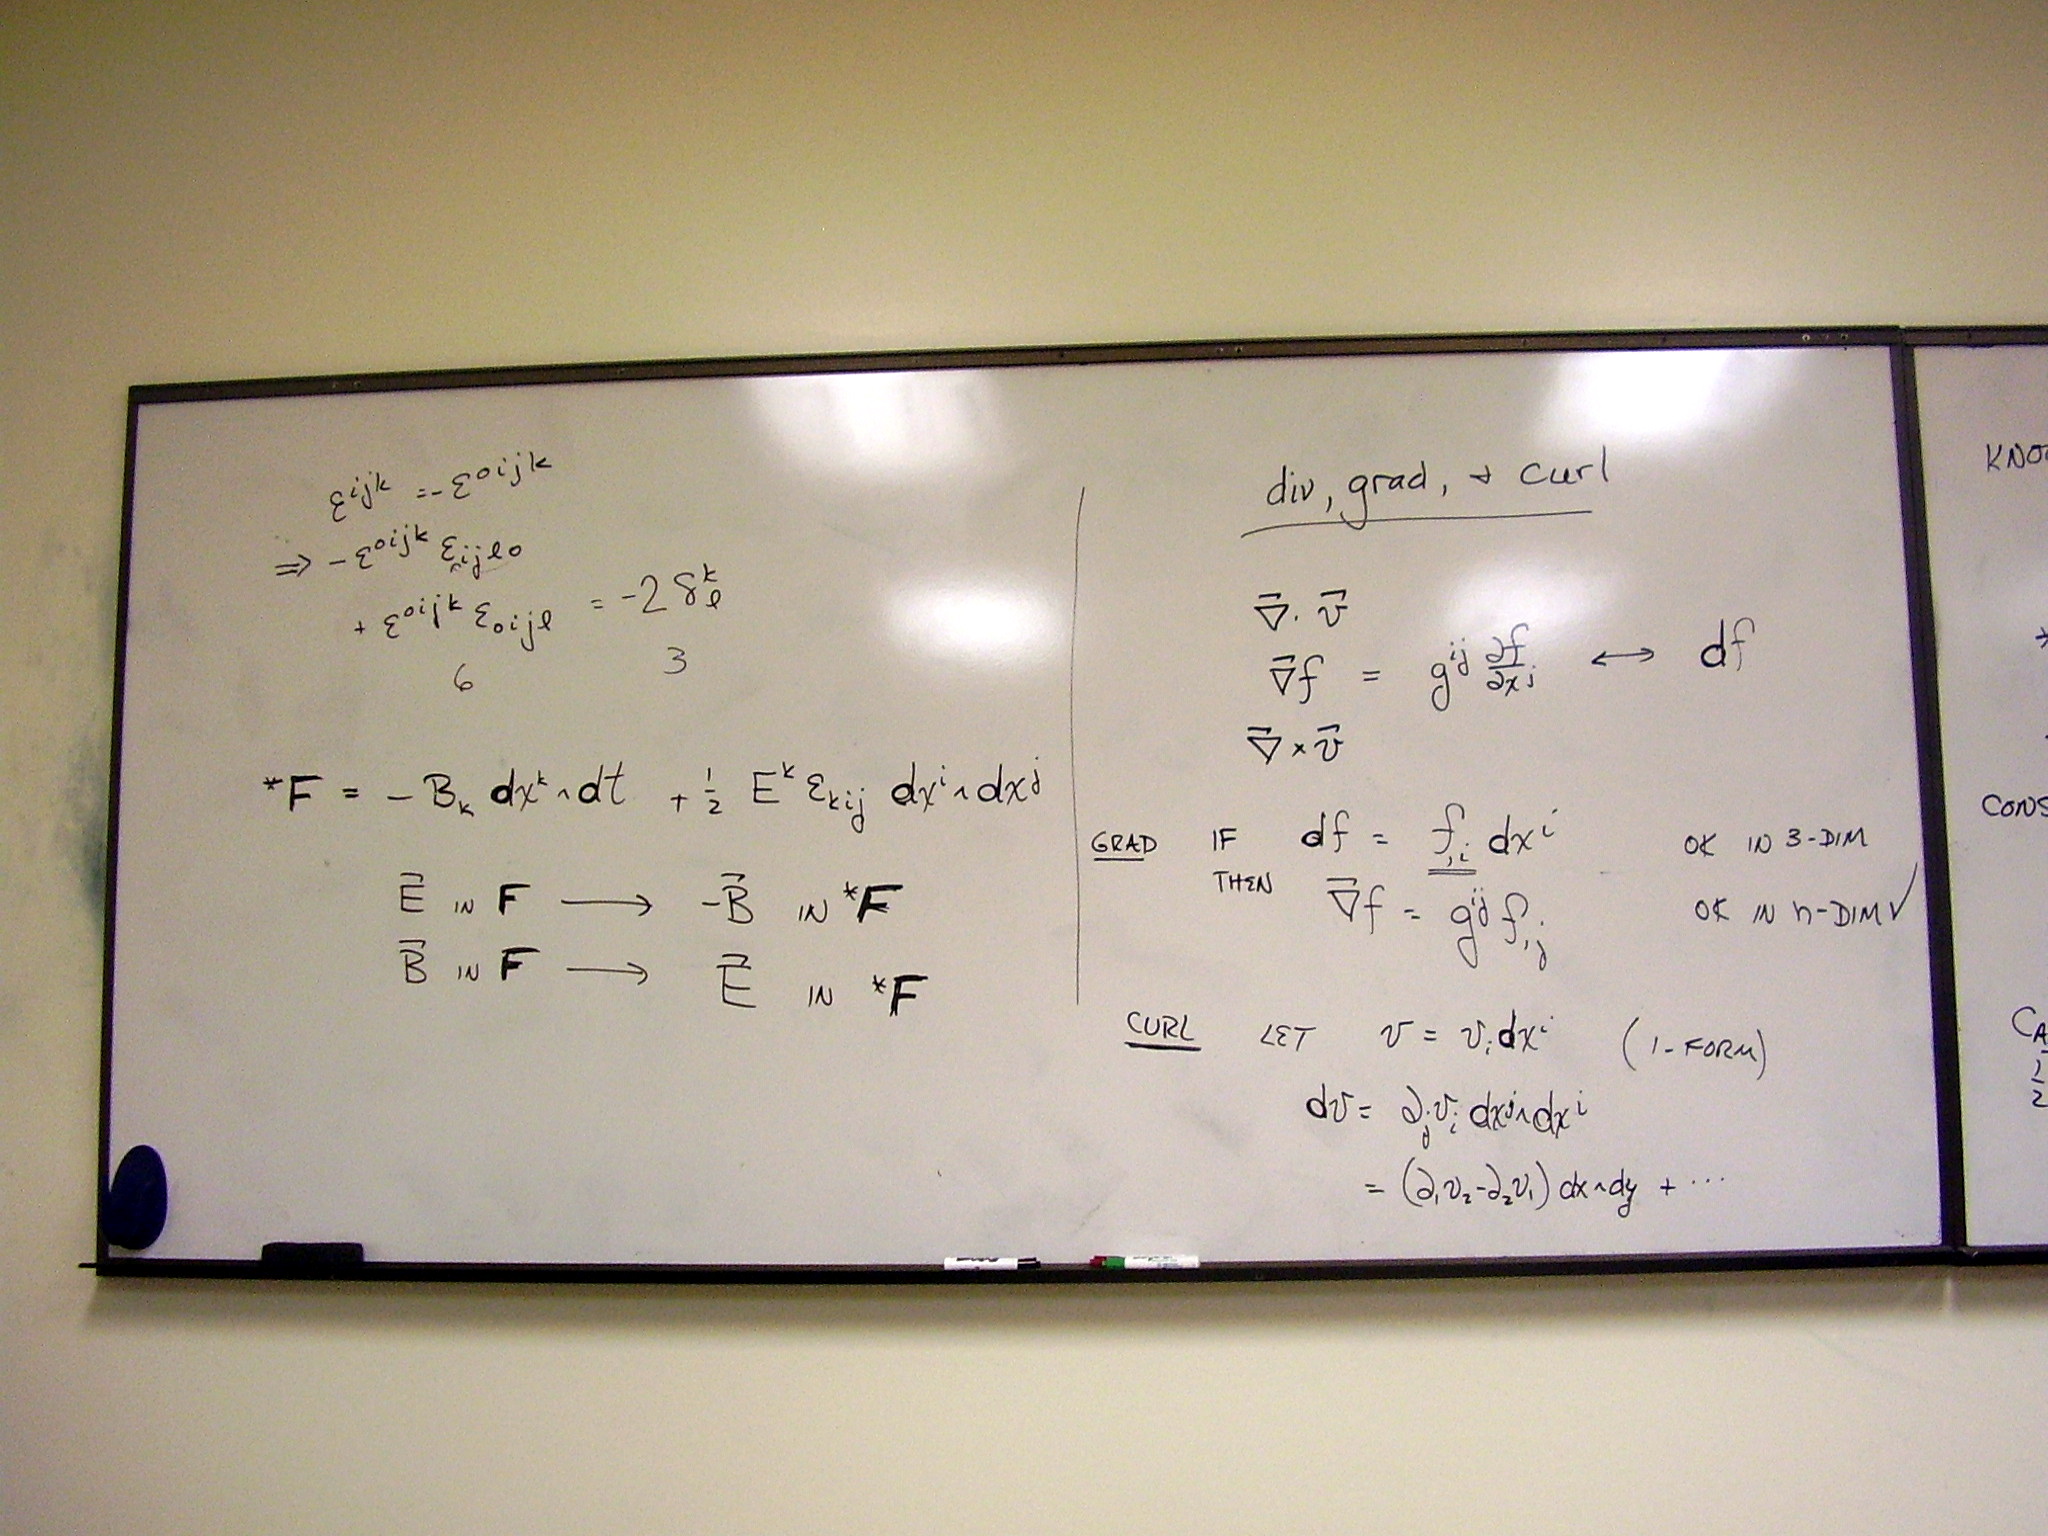 εⁱʲᵏ = -ε⁰ⁱʲᵏ
⇒ -ε⁰ⁱʲᵏ ε_{ijℓ0}
+ ε⁰ⁱʲᵏ ε_{0ijℓ} = -2 δ^k_ℓ
6 3
*F = - B_k dx^k ∧ dt + ½ E^k ε_{kij} dx^i ∧ dx^j
E⃗ IN F ⟶ -B⃗ IN *F
B⃗ IN F ⟶ E⃗ IN *F
div, grad, + curl
∇⃗ · v⃗
∇⃗f = g^{ij} ∂f/∂x^j ⟷ df
∇⃗ × v⃗
GRAD IF df = f_{,i} dx^i OK IN 3-DIM
THEN ∇⃗f = g^{ij} f_{,j} OK IN n-DIM ✓
CURL LET v = v_i dx^i (1-FORM)
dv = ∂_j v_i dx^j ∧ dx^i
= (∂₁v₂ - ∂₂v₁) dx ∧ dy + ...
KNO
*
CONS
CA
1/2